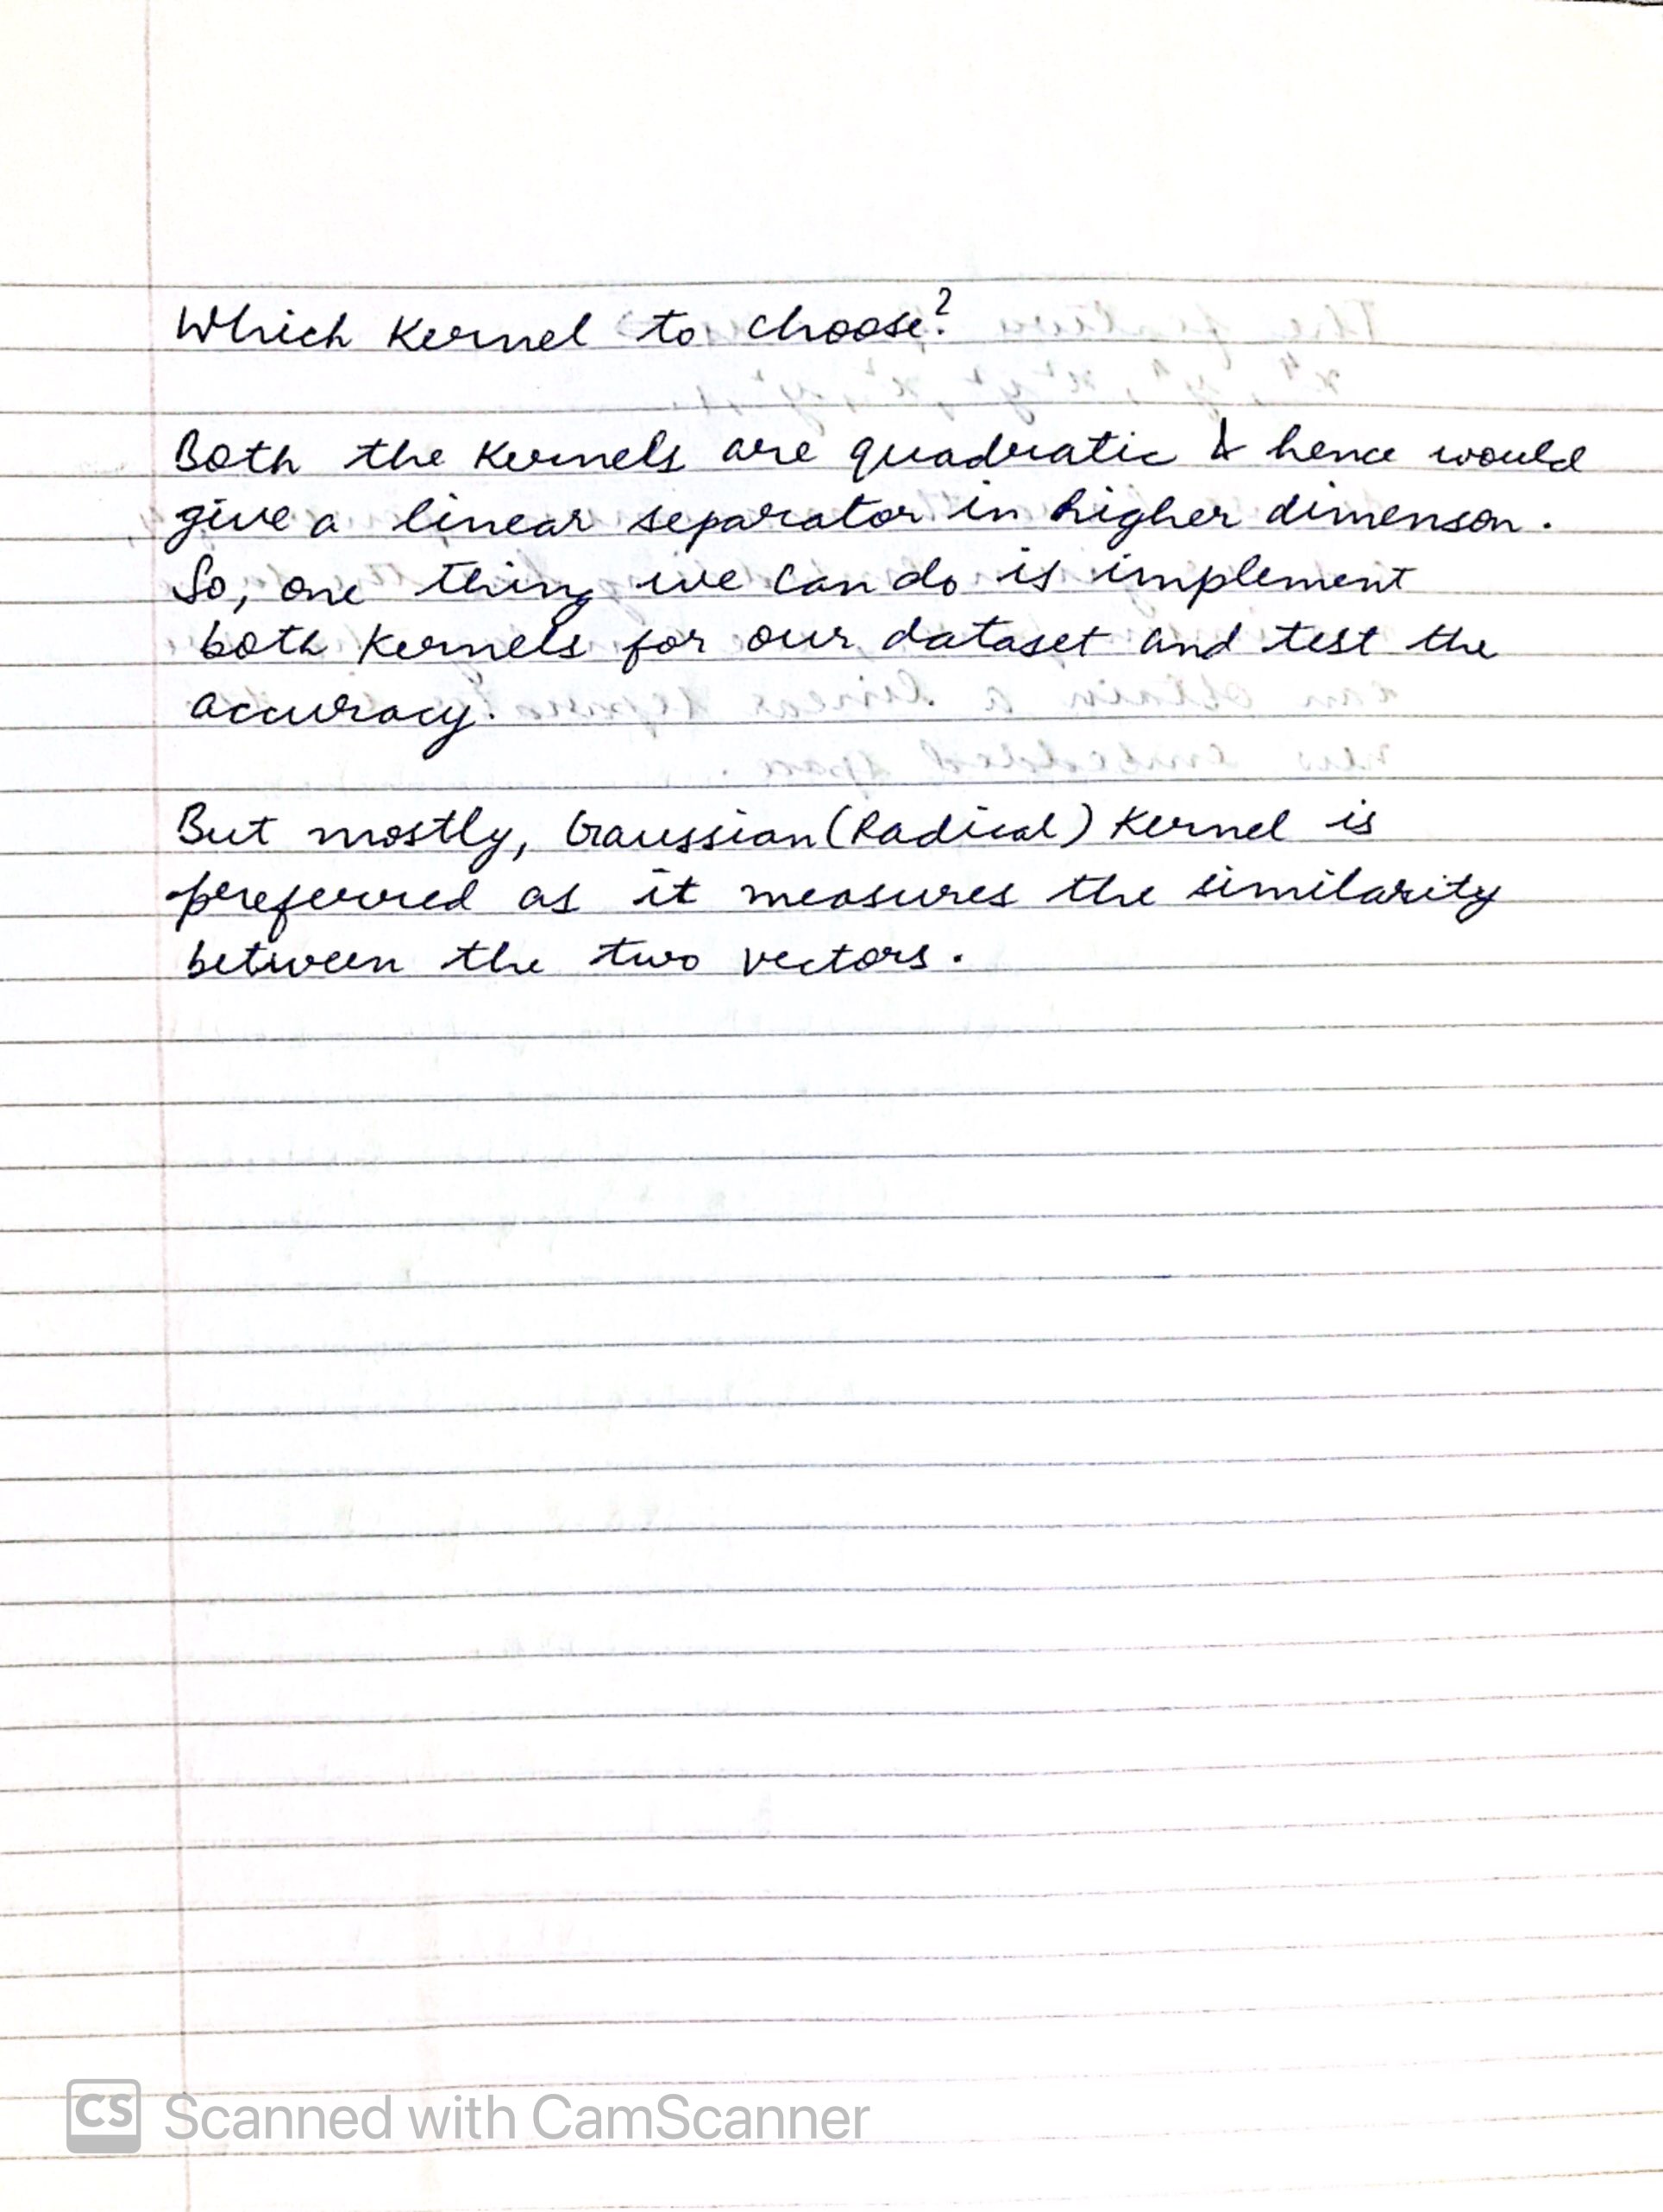 Which Kernel to choose?
Both the Kernels are quadratic & hence would
give a linear separator in higher dimenson.
So, one thing we can do is implement
both Kernels for our dataset and test the
accuracy.
But mostly, Gaussian (Radical) Kernel is
preferred as it measures the similarity
between the two vectors.
CS Scanned with CamScanner